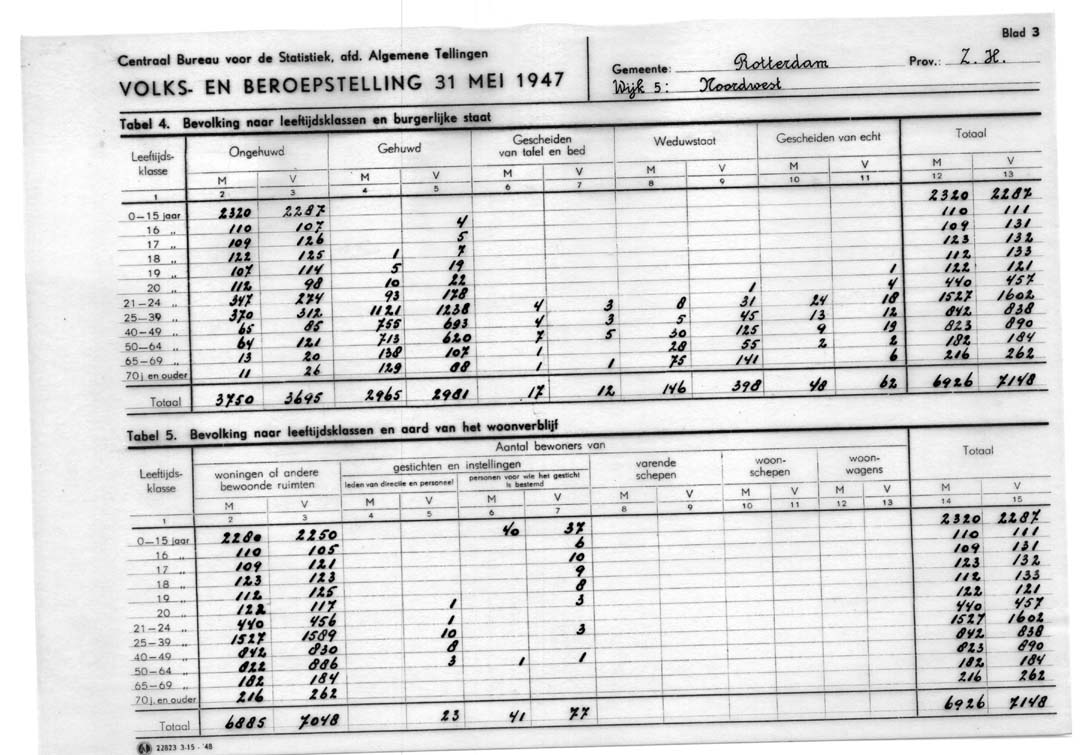 Blad 3
Centraal Bureau voor de Statistiek, afd. Algemene Tellingen
VOLKS- EN BEROEPSTELLING 31 MEI 1947
Gemeente: Rotterdam Prov.: Z. H.
Wijk 5: Noordwest
Tabel 4. Bevolking naar leeftijdsklassen en burgerlijke staat
Leeftijds-klasse Ongehuwd Gehuwd Gescheiden van tafel en bed Weduwstaat Gescheiden van echt Totaal
M V M V M V M V M V M V
1 2 3 4 5 6 7 8 9 10 11 12 13
0—15 jaar 2320 2287 2320 2287
16 „ 110 107 4 110 111
17 „ 109 126 5 109 131
18 „ 122 125 1 7 123 132
19 „ 107 114 5 19 112 133
20 „ 112 98 10 22 1 122 121
21—24 „ 347 274 93 178 1 4 440 457
25—39 „ 370 312 1121 1238 4 3 8 31 24 18 1527 1602
40—49 „ 65 85 755 693 4 3 5 45 13 12 842 838
50—64 „ 64 121 713 620 7 5 30 125 9 19 823 890
65—69 „ 13 20 138 107 1 28 55 2 2 182 184
70 j. en ouder 11 26 129 88 1 1 75 141 6 216 262
Totaal 3750 3695 2965 2981 17 12 146 398 48 62 6926 7148
Tabel 5. Bevolking naar leeftijdsklassen en aard van het woonverblijf
Aantal bewoners van
Leeftijds-klasse woningen of andere bewoonde ruimten gestichten en instellingen varende schepen woon-schepen woon-wagens Totaal
leden van directie en personeel personen voor wie het gesticht is bestemd
M V M V M V M V M V M V M V
1 2 3 4 5 6 7 8 9 10 11 12 13 14 15
0—15 jaar 2280 2250 40 37 2320 2287
16 „ 110 105 6 110 111
17 „ 109 121 10 109 131
18 „ 123 123 9 123 132
19 „ 112 125 8 112 133
20 „ 122 117 1 3 122 121
21—24 „ 440 456 1 440 457
25—39 „ 1527 1589 10 3 1527 1602
40—49 „ 842 830 8 842 838
50—64 „ 822 886 3 1 1 823 890
65—69 „ 182 184 182 184
70 j. en ouder 216 262 216 262
Totaal 6885 7048 23 41 77 6926 7148
22823 3-15 - '48